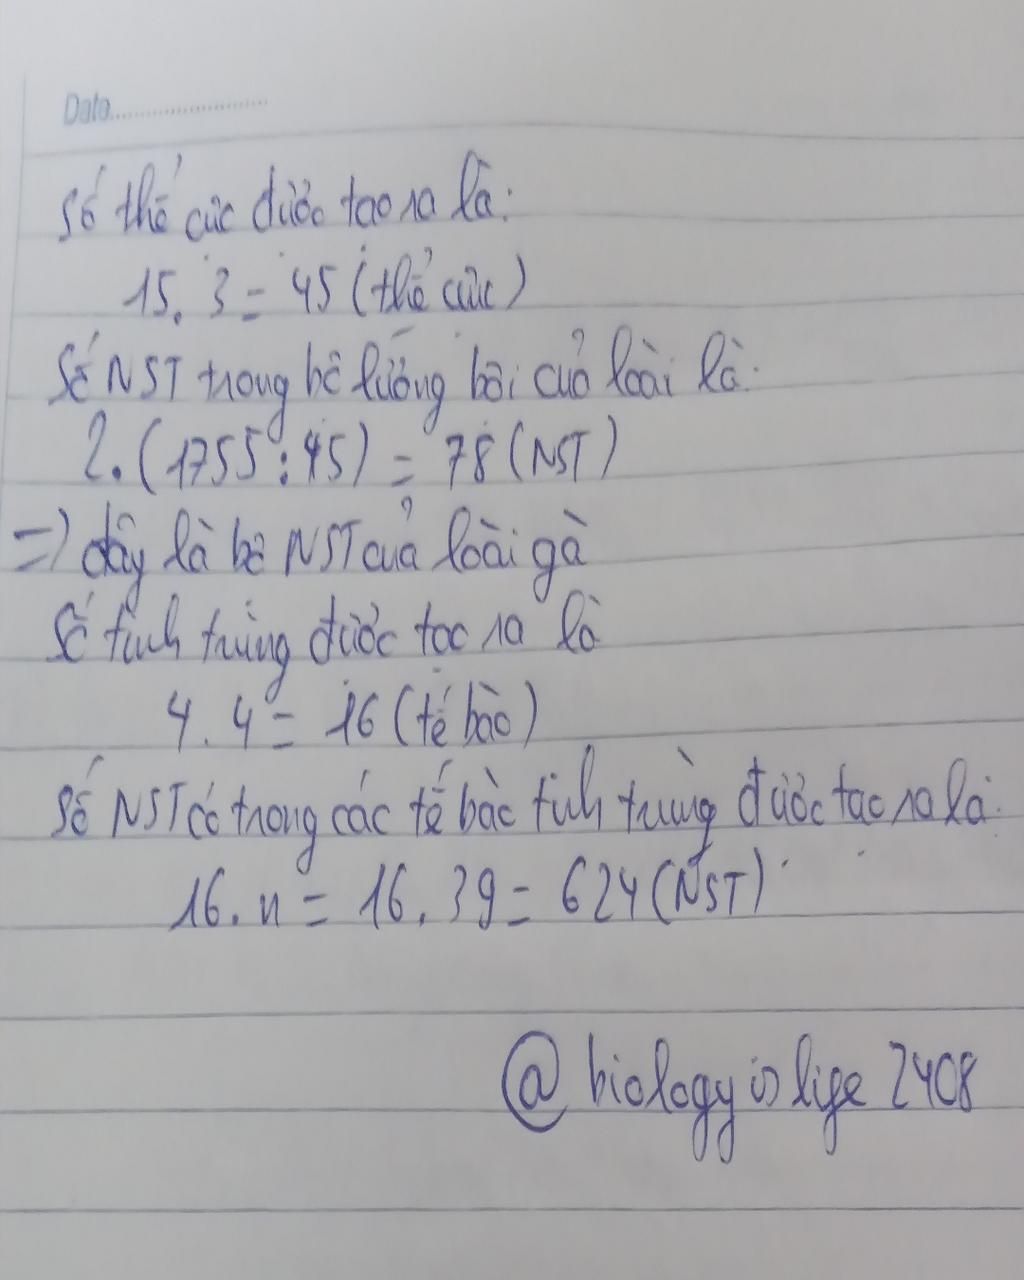 Date....................
Số thể cực được tạo ra là:
15. 3 = 45 (thể cực)
Số NST trong bộ lưỡng bội của loài là:
2. (1755 : 45) = 78 (NST)
=> đây là bộ NST của loài gà
Số tinh trùng được tạo ra là
4. 4 = 16 (tế bào)
Số NST có trong các tế bào tinh trùng được tạo ra là:
16. n = 16. 39 = 624 (NST)
@ biology is life 2408